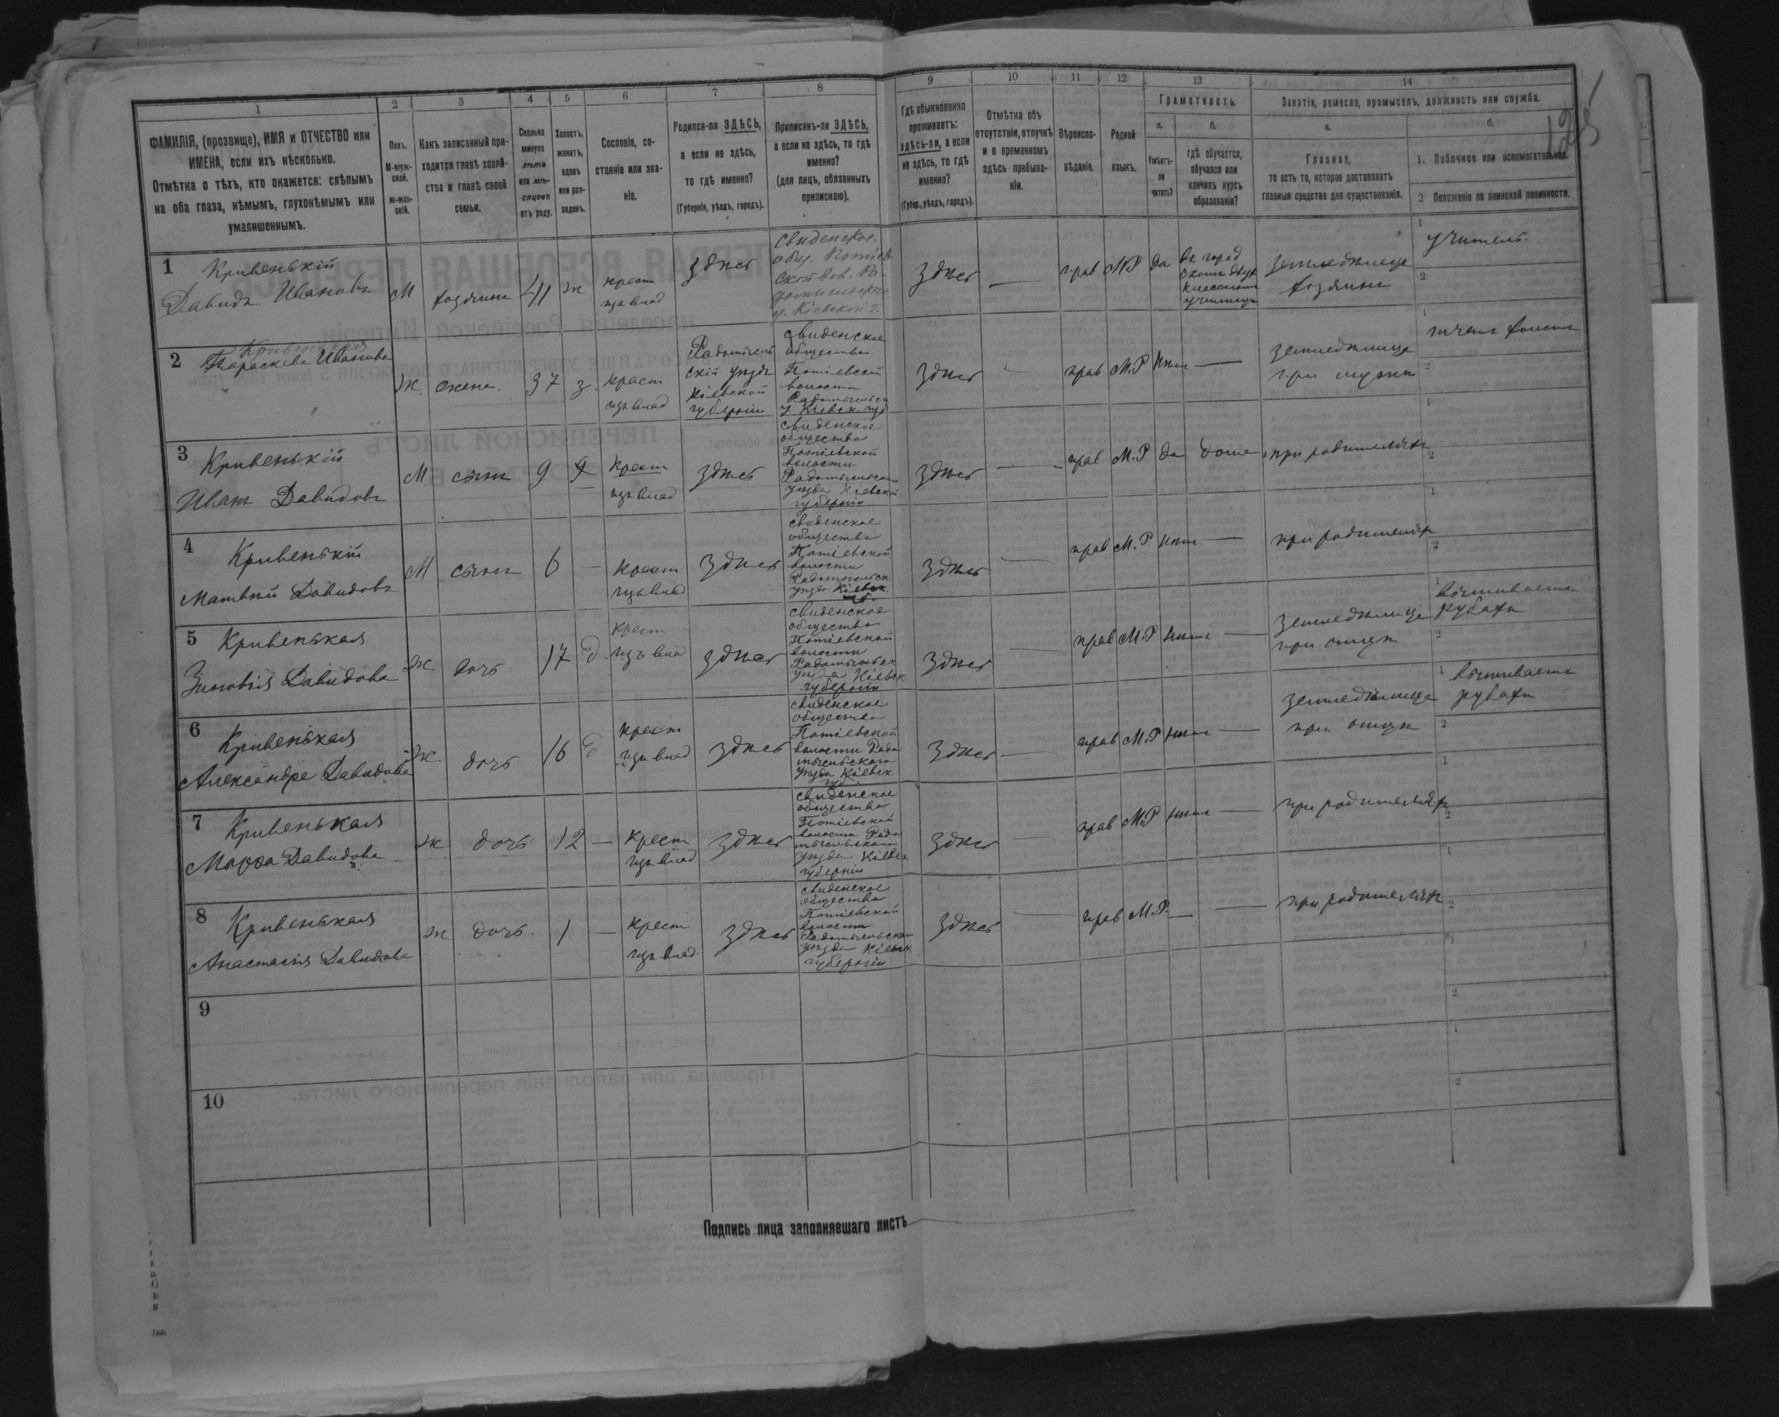 125
1 2 3 4 5 6 7 8 9 10 11 12 13 14
ФАМИЛІЯ, (прозвище), ИМЯ и ОТЧЕСТВО или
ИМЕНА, если ихъ нѣсколько.
Отмѣтка о тѣхъ, кто окажется: слѣпымъ
на оба глаза, нѣмымъ, глухонѣмымъ или
умалишеннымъ.
Полъ.
М-муж-
ской.
Ж-жен-
скій.
Какъ записанный при-
ходится главѣ хозяй-
ства и главѣ своей
семьи.
Сколько
минуло
лѣтъ
или мѣ-
сяцевъ
отъ роду.
Холостъ,
женатъ,
вдовъ
или раз-
веденъ.
Сословіе, со-
стояніе или зва-
ніе.
Родился-ли ЗДѢСЬ,
а если не здѣсь,
то гдѣ именно?
(Губернія, уѣздъ, городъ).
Приписанъ-ли ЗДѢСЬ,
а если не здѣсь, то гдѣ
именно?
(для лицъ, обязанныхъ
припискою).
Гдѣ обыкновенно
проживаетъ:
здѣсь-ли, а если
не здѣсь, то гдѣ
именно?
(Губер., уѣздъ, городъ).
Отмѣтка объ
отсутствіи, отлучкѣ
и о временномъ
здѣсь пребыва-
ніи.
Вѣроиспо-
вѣданіе.
Родной
языкъ.
Грамотность.
а. б.
Умѣетъ-
ли
читать?
гдѣ обучается,
обучался или
кончилъ курсъ
образованія?
Занятіе, ремесло, промыселъ, должность или служба.
а. б.
Главное,
то есть то, которое доставляетъ
главныя средства для существованія.
1. Побочное или вспомогательное.
2 Положеніе по воинской повинности.
1 Кривенькій
Давидъ Ивановъ
М хозяинъ 41 ж
крест
изъ влад
здѣсь
свиденское
здѣсь — прав М.Р да
земледѣлецъ
хозяинъ
1 учитель
2
2 Кривенькая
Параскева Иванова
Ж. жена. 37 з.
крест
изъ влад
Радомысль
скій уѣздъ
Кіевской
губерніи
свиденское
общества
Потіевской
волости
здѣсь — прав М.Р нѣт —
при мужѣ
1
2
3 Кривенькій
Иванъ Давидовъ
М. сынъ 9
крест
изъ влад
здѣсь
свиденское
общества
Потіевской
волости
уѣзда Кіевской
губерніи
здѣсь — прав М.Р да дома при родителяхъ
1
2
4 Кривенькій
Матвѣй Давидовъ
М сынъ 6 —
крест
изъ влад
здѣсь
свиденское
общества
Потіевской
волости
здѣсь — прав М.Р нѣт — при родителяхъ
1
2
5 Кривенькая
Зиновія Давидова
Ж дочь 17 д.
крест
изъ влад
здѣсь
свиденское
общества
Потіевской
волости
уѣзда Кіевск
губерніи
здѣсь прав М.Р нѣт —
земледѣлица
при отцѣ
1 вышиваетъ
рубахи
2
6 Кривенькая
Александра Давидова
Ж. дочь 16 д
крест
изъ влад
здѣсь
свиденское
общества
Потіевской
волости Радо
мысльскаго
уѣзда Кіевск
здѣсь — прав М.Р нѣт —
земледѣлица
при отцѣ
1 вышиваетъ
рубахи
2
7 Кривенькая
Марѳа Давидова
Ж. дочь 12 —
крест
изъ влад
здѣсь
свиденское
общества
Потіевской
волости Радо
мысльскаго
уѣзда Кіевск
губерніи
здѣсь — прав М.Р нѣт — при родителяхъ
1
2
8 Кривенькая
Анастасія Давидова
Ж дочь 1 —
крест
изъ влад.
здѣсь
свиденское
общества
Потіевской
волости
уѣзда Кіевск
губерніи
здѣсь — прав М.Р. — — при родителяхъ
1
2
9
1
2
10
1
2
Подпись лица заполнявшаго листъ